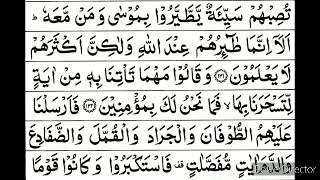 تُصِبْهُمْ سَيِّئَةٌ يَّطَّيَّرُوْا بِمُوْسٰى وَمَنْ مَّعَهٗ ؕ
اَلَاۤ اِنَّمَا طٰٓئِرُهُمْ عِنْدَ اللّٰهِ وَلٰكِنَّ اَكْثَرَهُمْ
لَا يَعْلَمُوْنَ ﴿۱۳۱﴾ وَقَالُوْا مَهْمَا تَاْتِنَا بِهٖ مِنْ اٰيَةٍ
لِّتَسْحَرَنَا بِهَا ۙ فَمَا نَحْنُ لَكَ بِمُؤْمِنِيْنَ ﴿۱۳۲﴾ فَاَرْسَلْنَا
عَلَيْهِمُ الطُّوْفَانَ وَالْجَرَادَ وَالْقُمَّلَ وَالضَّفَادِعَ
وَالدَّمَ اٰيٰتٍ مُّفَصَّلٰتٍ فَاسْتَكْبَرُوْا وَكَانُوْا قَوْمًا